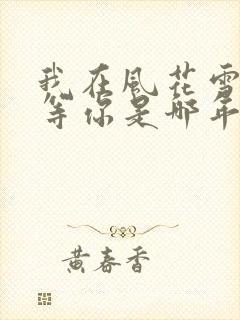 我在風花雪
等你是那年
黃春香